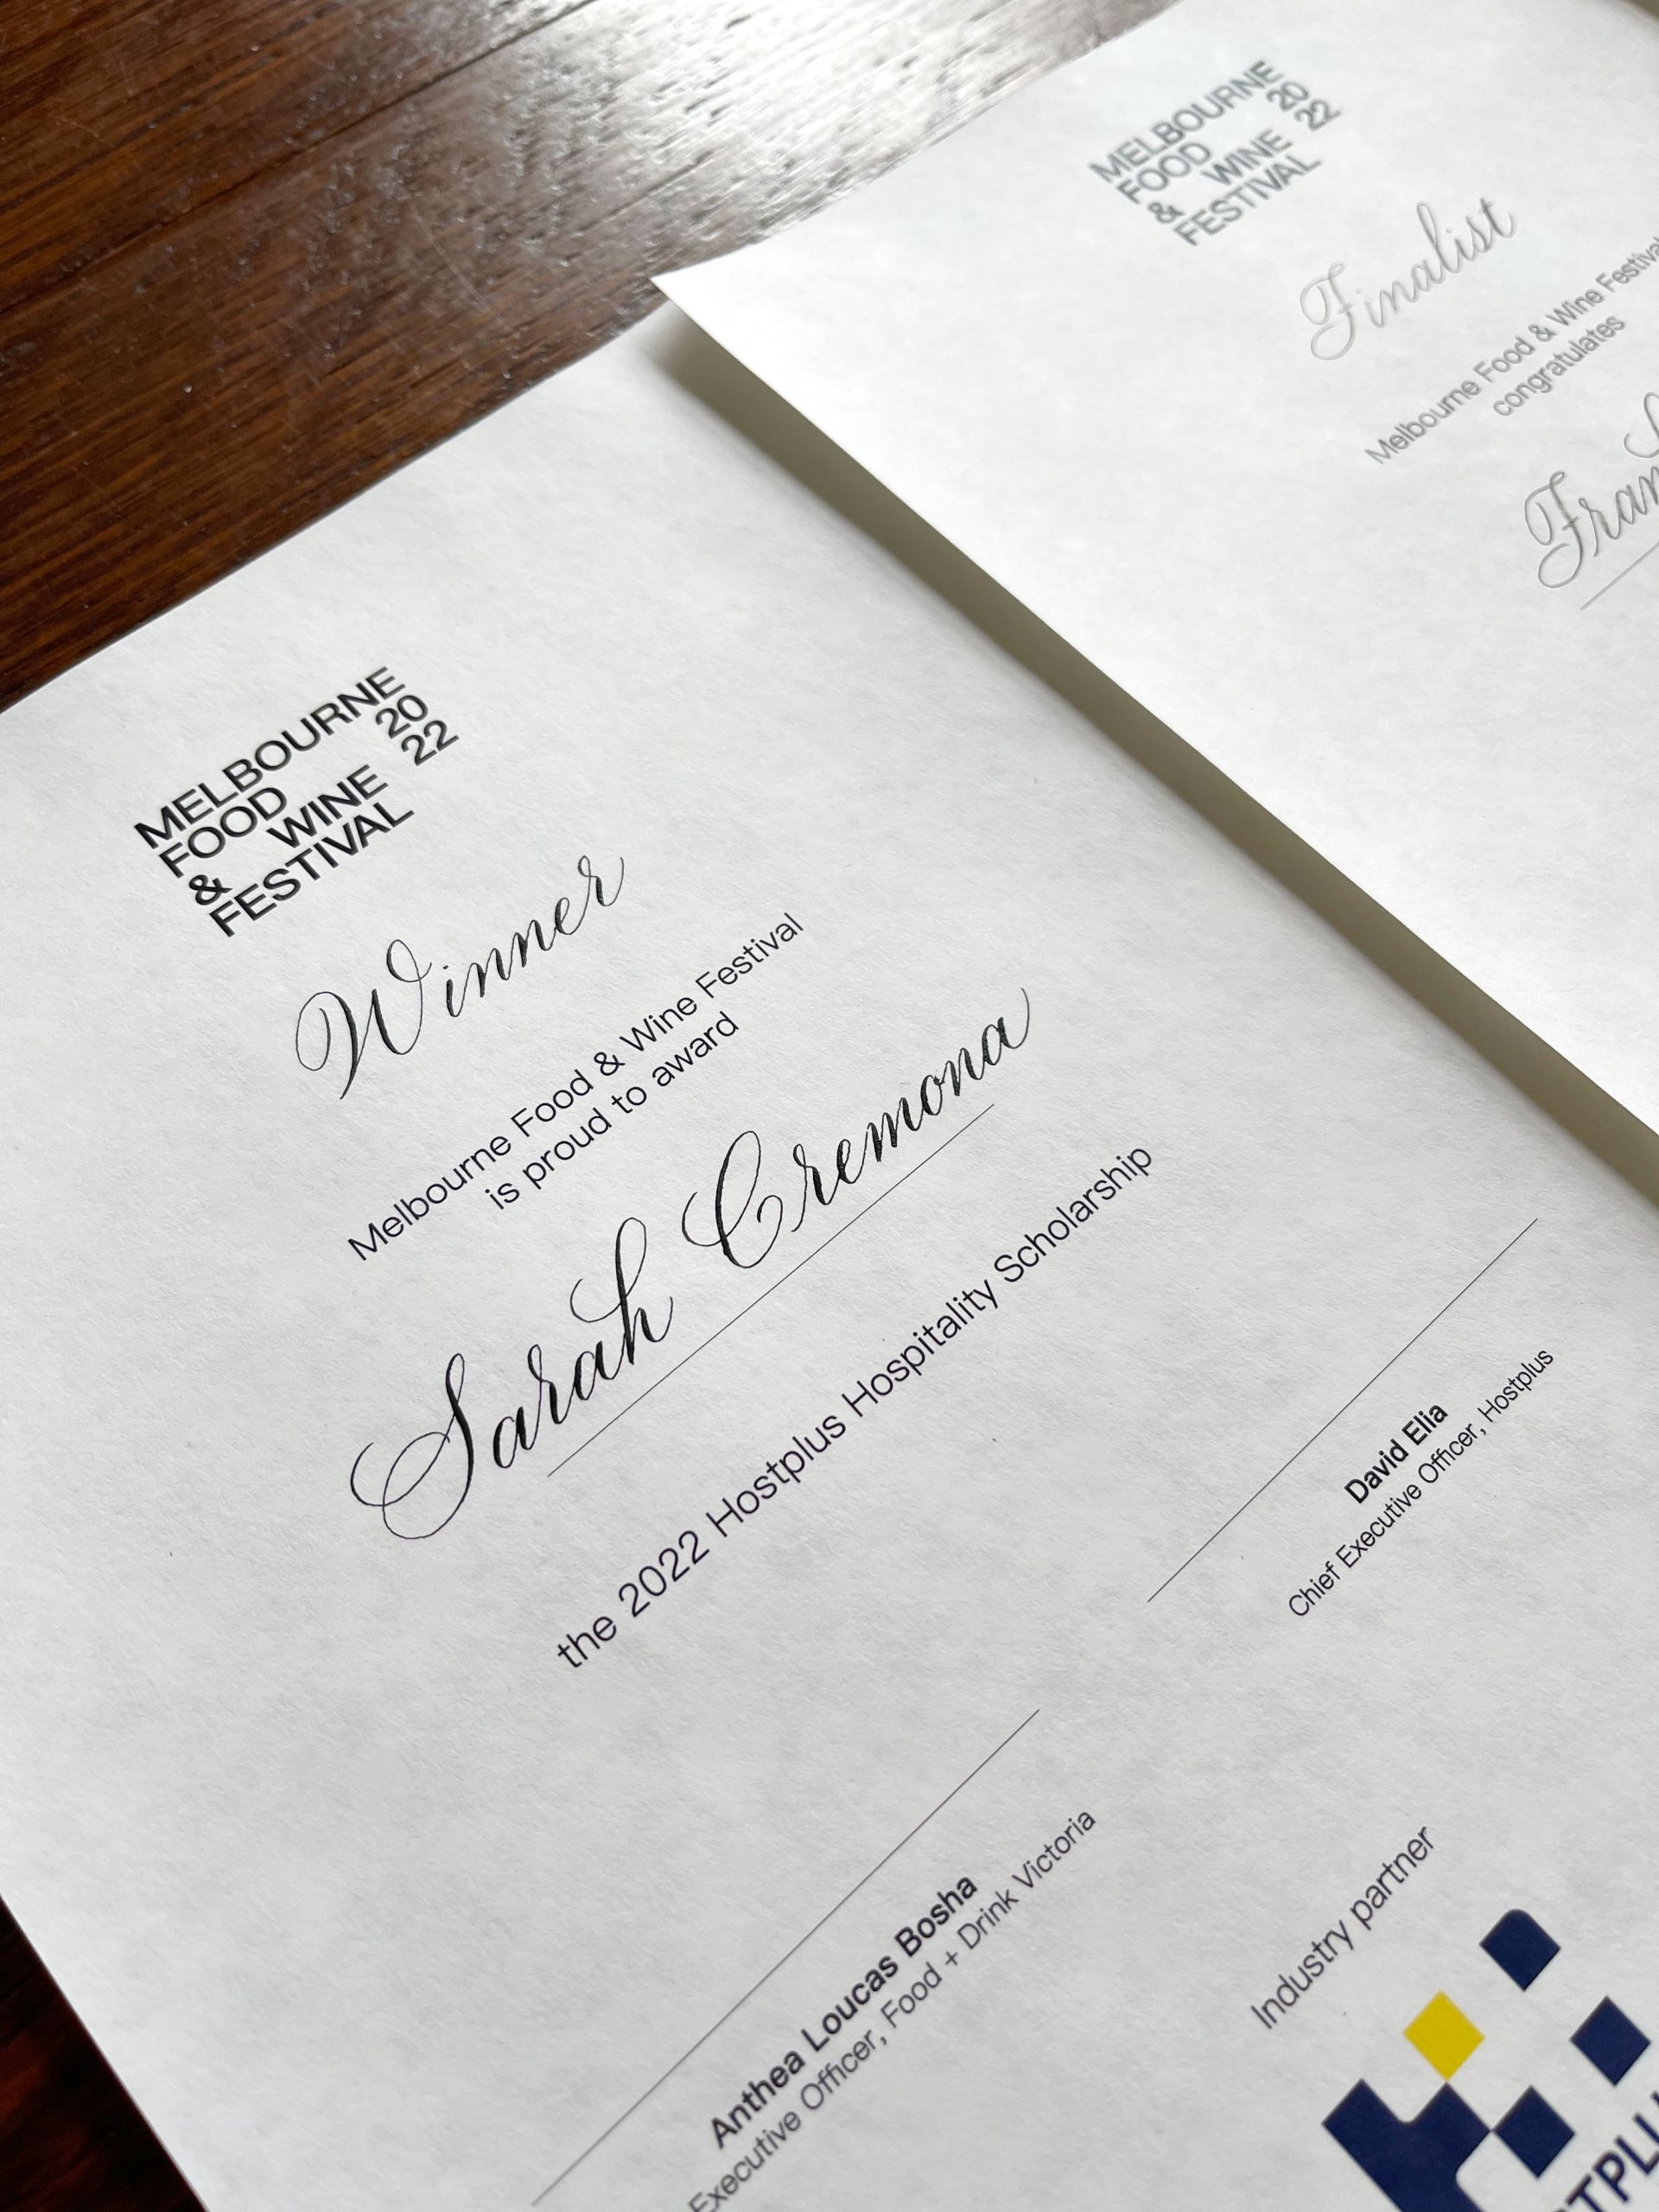 MELBOURNE
FOOD 20
& WINE 22
FESTIVAL
Winner
Melbourne Food & Wine Festival
is proud to award
Sarah Cremona
the 2022 Hostplus Hospitality Scholarship
David Elia
Chief Executive Officer, Hostplus
Anthea Loucas Bosha
Executive Officer, Food + Drink Victoria
Industry partner
MELBOURNE
FOOD 20
& WINE 22
FESTIVAL
Finalist
Melbourne Food & Wine Festival
congratulates